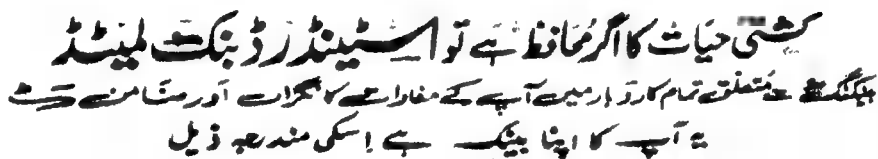 کشتی حیات کا اگر محافظ ہے تو اسٹینڈرڈ بنک لمیٹڈ
بنکنگ سے متعلق تمام کاروبار میں آپ کے مفادات کا نگراں اور ضامن ہے
یہ آپ کا اپنا بینک ہے اسکی مندرجہ ذیل